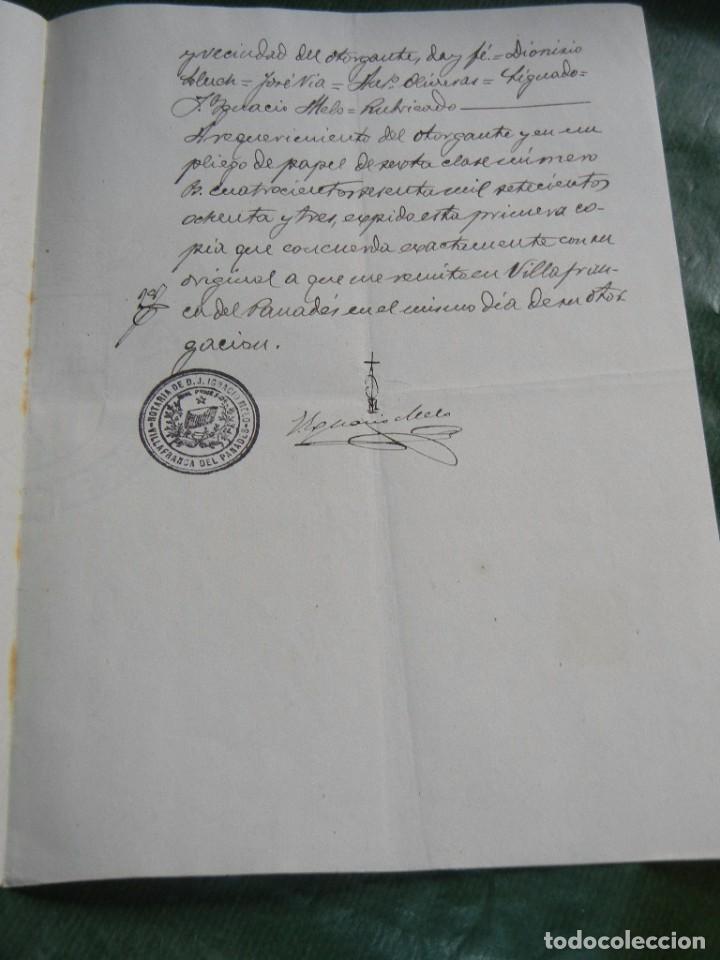 y vecindad del otorgante, doy fé.= Dionisio
Lluch = José Via = Ant.º Oliveras = Signado =
J. Ignacio Melo = Rubricado
A requerimiento del otorgante y en un
pliego de papel de sexta clase número
B. cuatrocientos sesenta mil setecientos
ochenta y tres, expido esta primera co-
pia que concuerda exactamente con su
original a que me remito en Villafran-
ca del Panadés en el mismo día de su otor
gacion.
NOTARIA DE D. J. IGNACIO MELO
VILLAFRANCA DEL PANADÉS
J. Ignacio Melo
todocoleccion